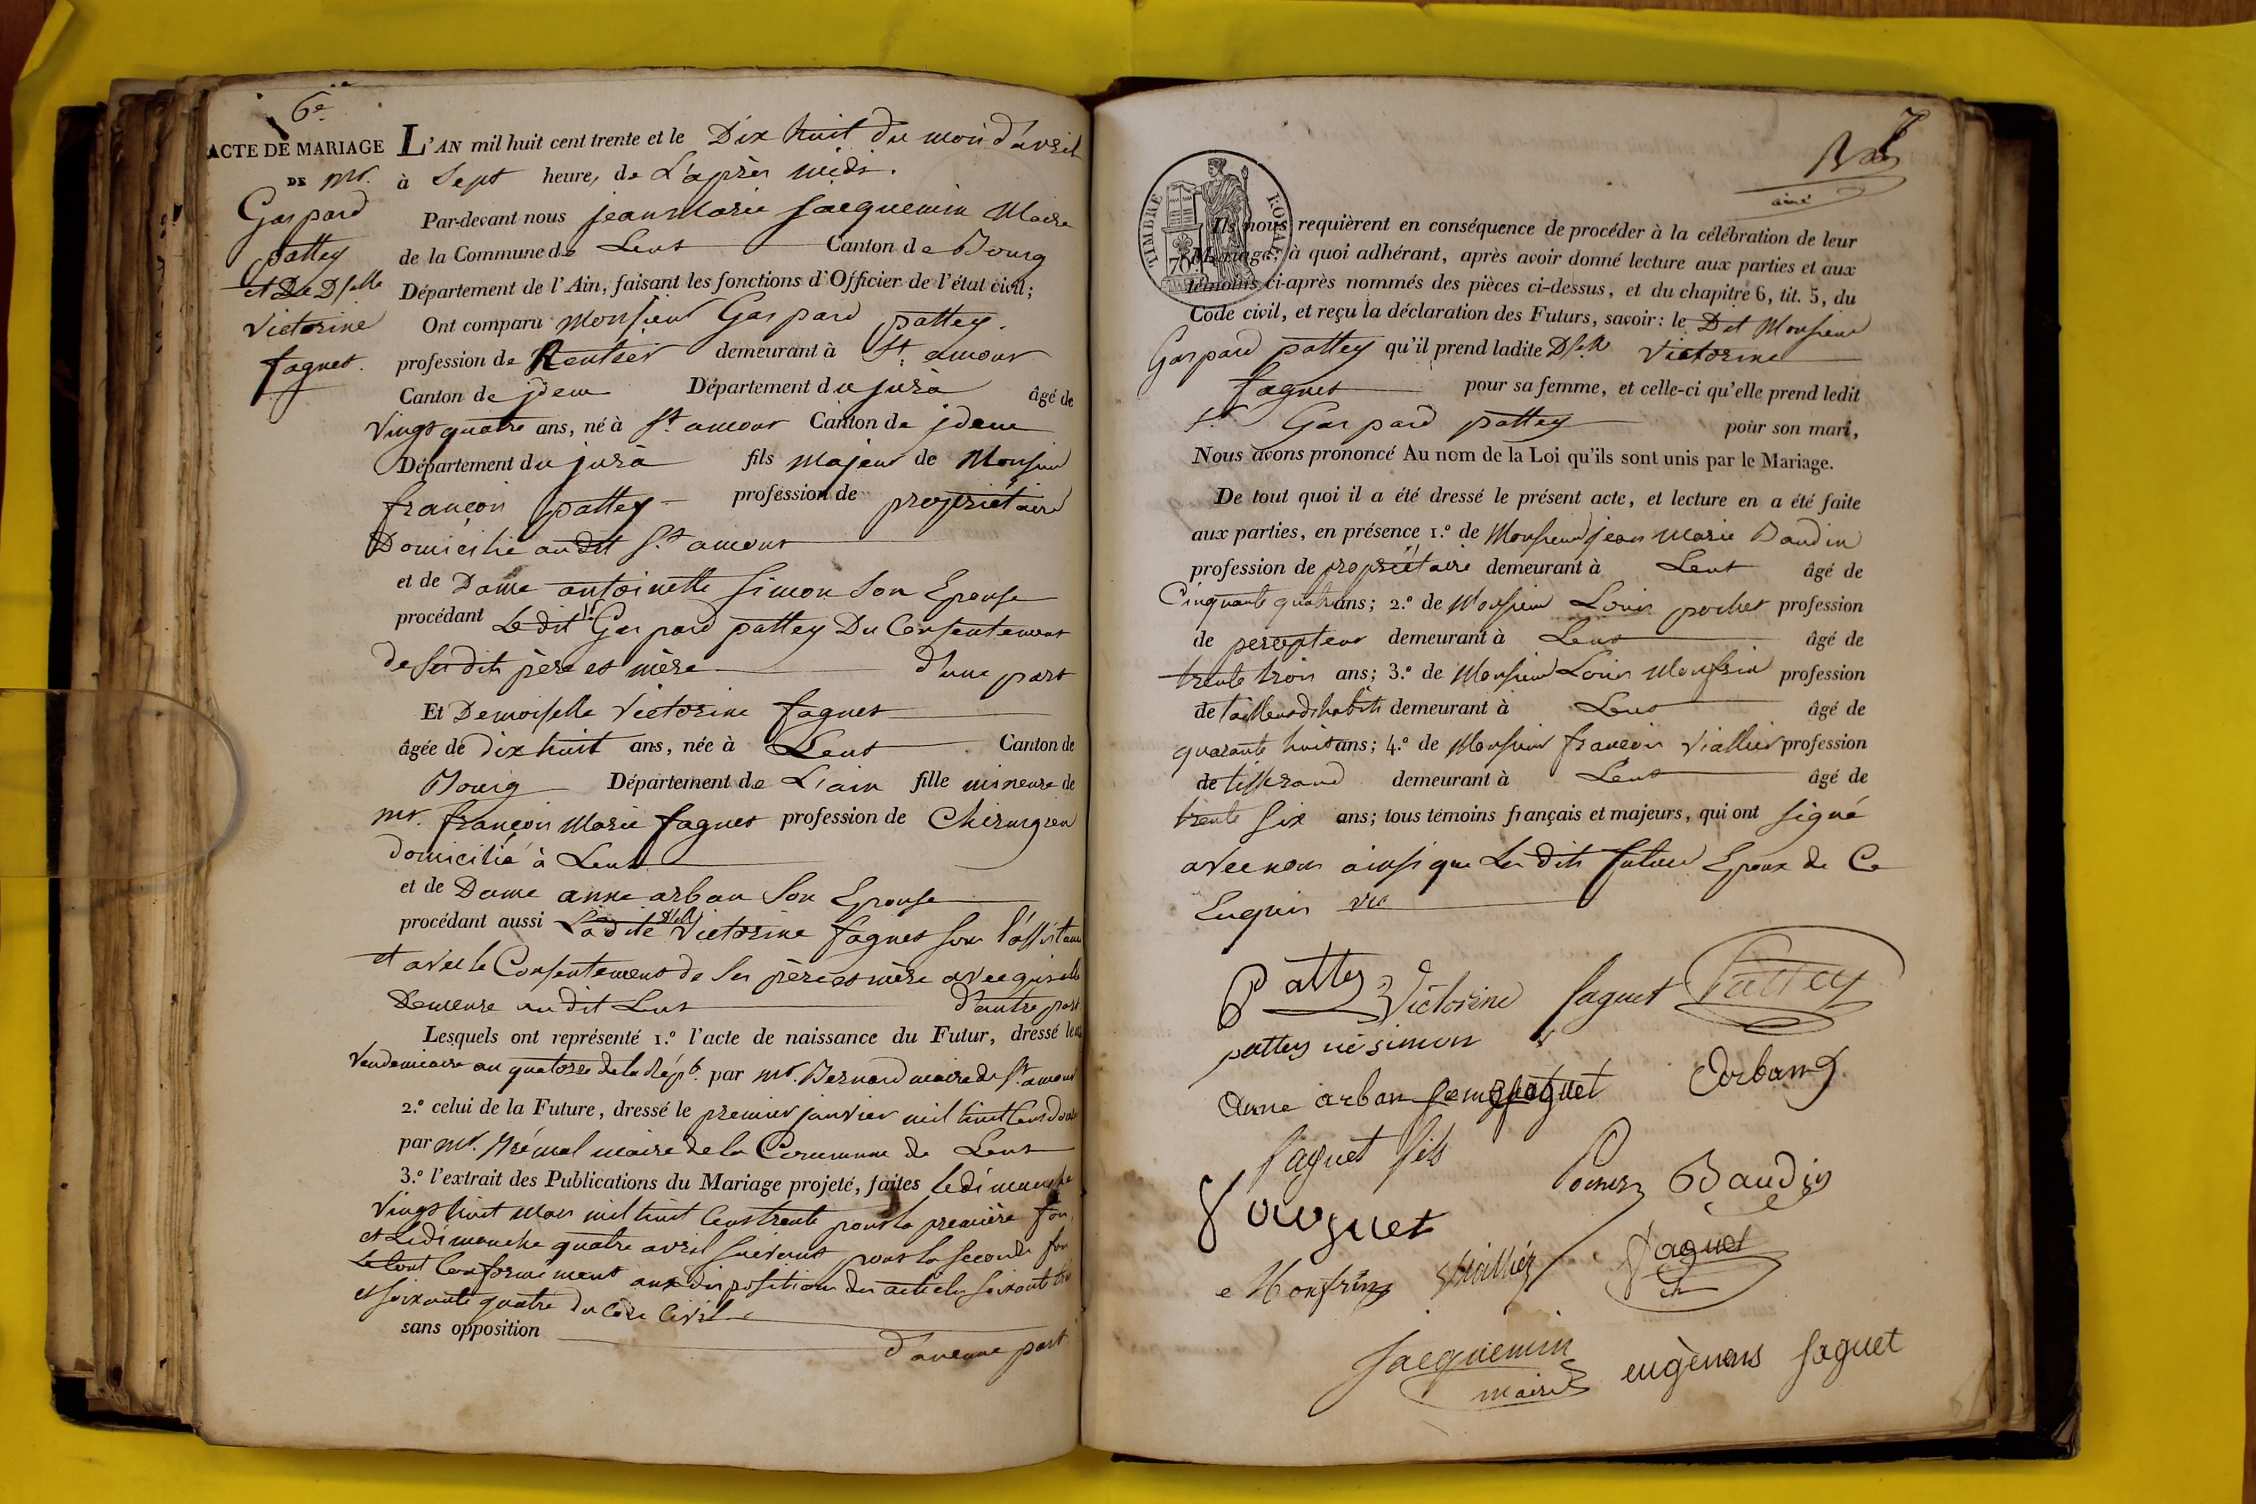 6e
ACTE DE MARIAGE
DE Mr.
Gaspard
pattey
et De Dselle
victorine
faguet.
L'AN mil huit cent trente et le Dix huit du mois d'avril
à Sept heures de L'après midi.
Par-devant nous jean Marie jacquemin Maire
de la Commune de Lent Canton de Bourg
Département de l'Ain, faisant les fonctions d'Officier de l'état civil;
Ont comparu Monsieur Gaspard pattey.
profession de Rentier demeurant à St. amour
Canton de jdem Département du jura âgé de
vingt quatre ans, né à St. amour Canton de jdem
Département du jura fils majeur de Monsieur
françois pattey profession de propriétaire
Domicilié audit St. amour
et de Dame antoinette Simon Son Epouse
procédant Le dit Sr. Gaspard pattey Du Consentement
de ses dits père et mère d'une part
Et Demoiselle victorine faguet
âgée de dix huit ans, née à Lent Canton de
Bourg Département de L'ain fille mineure de
Mr. françois Marie faguet profession de Chirurgien
domicilié à Lent
et de Dame anne arban Son Epouse
procédant aussi Ladite Dslle victorine faguet sous l'assistance
et avec le Consentement de Ses père et mère avec qui elle
Demeure au dit Lent d'autre part
Lesquels ont représenté 1.º l'acte de naissance du Futur, dressé le
vendemiaire an quatorze de la Rép. par Mr. Bernard maire de St. amour
2.º celui de la Future, dressé le premier janvier mil huit Cent douze
par Mr. maire de la Commune de Lent
3.º l'extrait des Publications du Mariage projeté, faites le dimanche
vingt huit Mars mil huit Cent trente pour la première fois,
et Le dimanche quatre avril Suivant pour la Seconde fois
Le tout Conformément aux dispositions des articles Soixante trois
et soixante quatre du Code Civil
sans opposition d'aucune part
7
TIMBRE ROYAL
70
Ils nous requièrent en conséquence de procéder à la célébration de leur
Mariage; à quoi adhérant, après avoir donné lecture aux parties et aux
témoins ci-après nommés des pièces ci-dessus, et du chapitre 6, tit. 5, du
Code civil, et reçu la déclaration des Futurs, savoir: le Dit Monsieur
Gaspard pattey qu'il prend ladite Dslle victorine
faguet pour sa femme, et celle-ci qu'elle prend ledit
Sr. Gaspard pattey pour son mari,
Nous avons prononcé Au nom de la Loi qu'ils sont unis par le Mariage.
De tout quoi il a été dressé le présent acte, et lecture en a été faite
aux parties, en présence 1.º de Monsieur jean Marie Baudin
profession de propriétaire demeurant à Lent âgé de
Cinquante quatre ans; 2.º de Monsieur Louis pochet profession
de percepteur demeurant à Lent âgé de
trente trois ans; 3.º de Monsieur Louis Monfrin profession
de tailleur d'habits demeurant à Lent âgé de
quarante huit ans; 4.º de Monsieur françois viallier profession
de tisserand demeurant à Lent âgé de
trente Six ans; tous témoins français et majeurs, qui ont signé
avec nous ainsi que Les dits futurs Epoux de Ce
Enquis
Pattey Victorine faguet Pattey
pattey né simon
anne arban faguet Dorban
faguet fils
Baudin
faguet
Monfrin viallier faguet
Jacquemin
maire
faguet